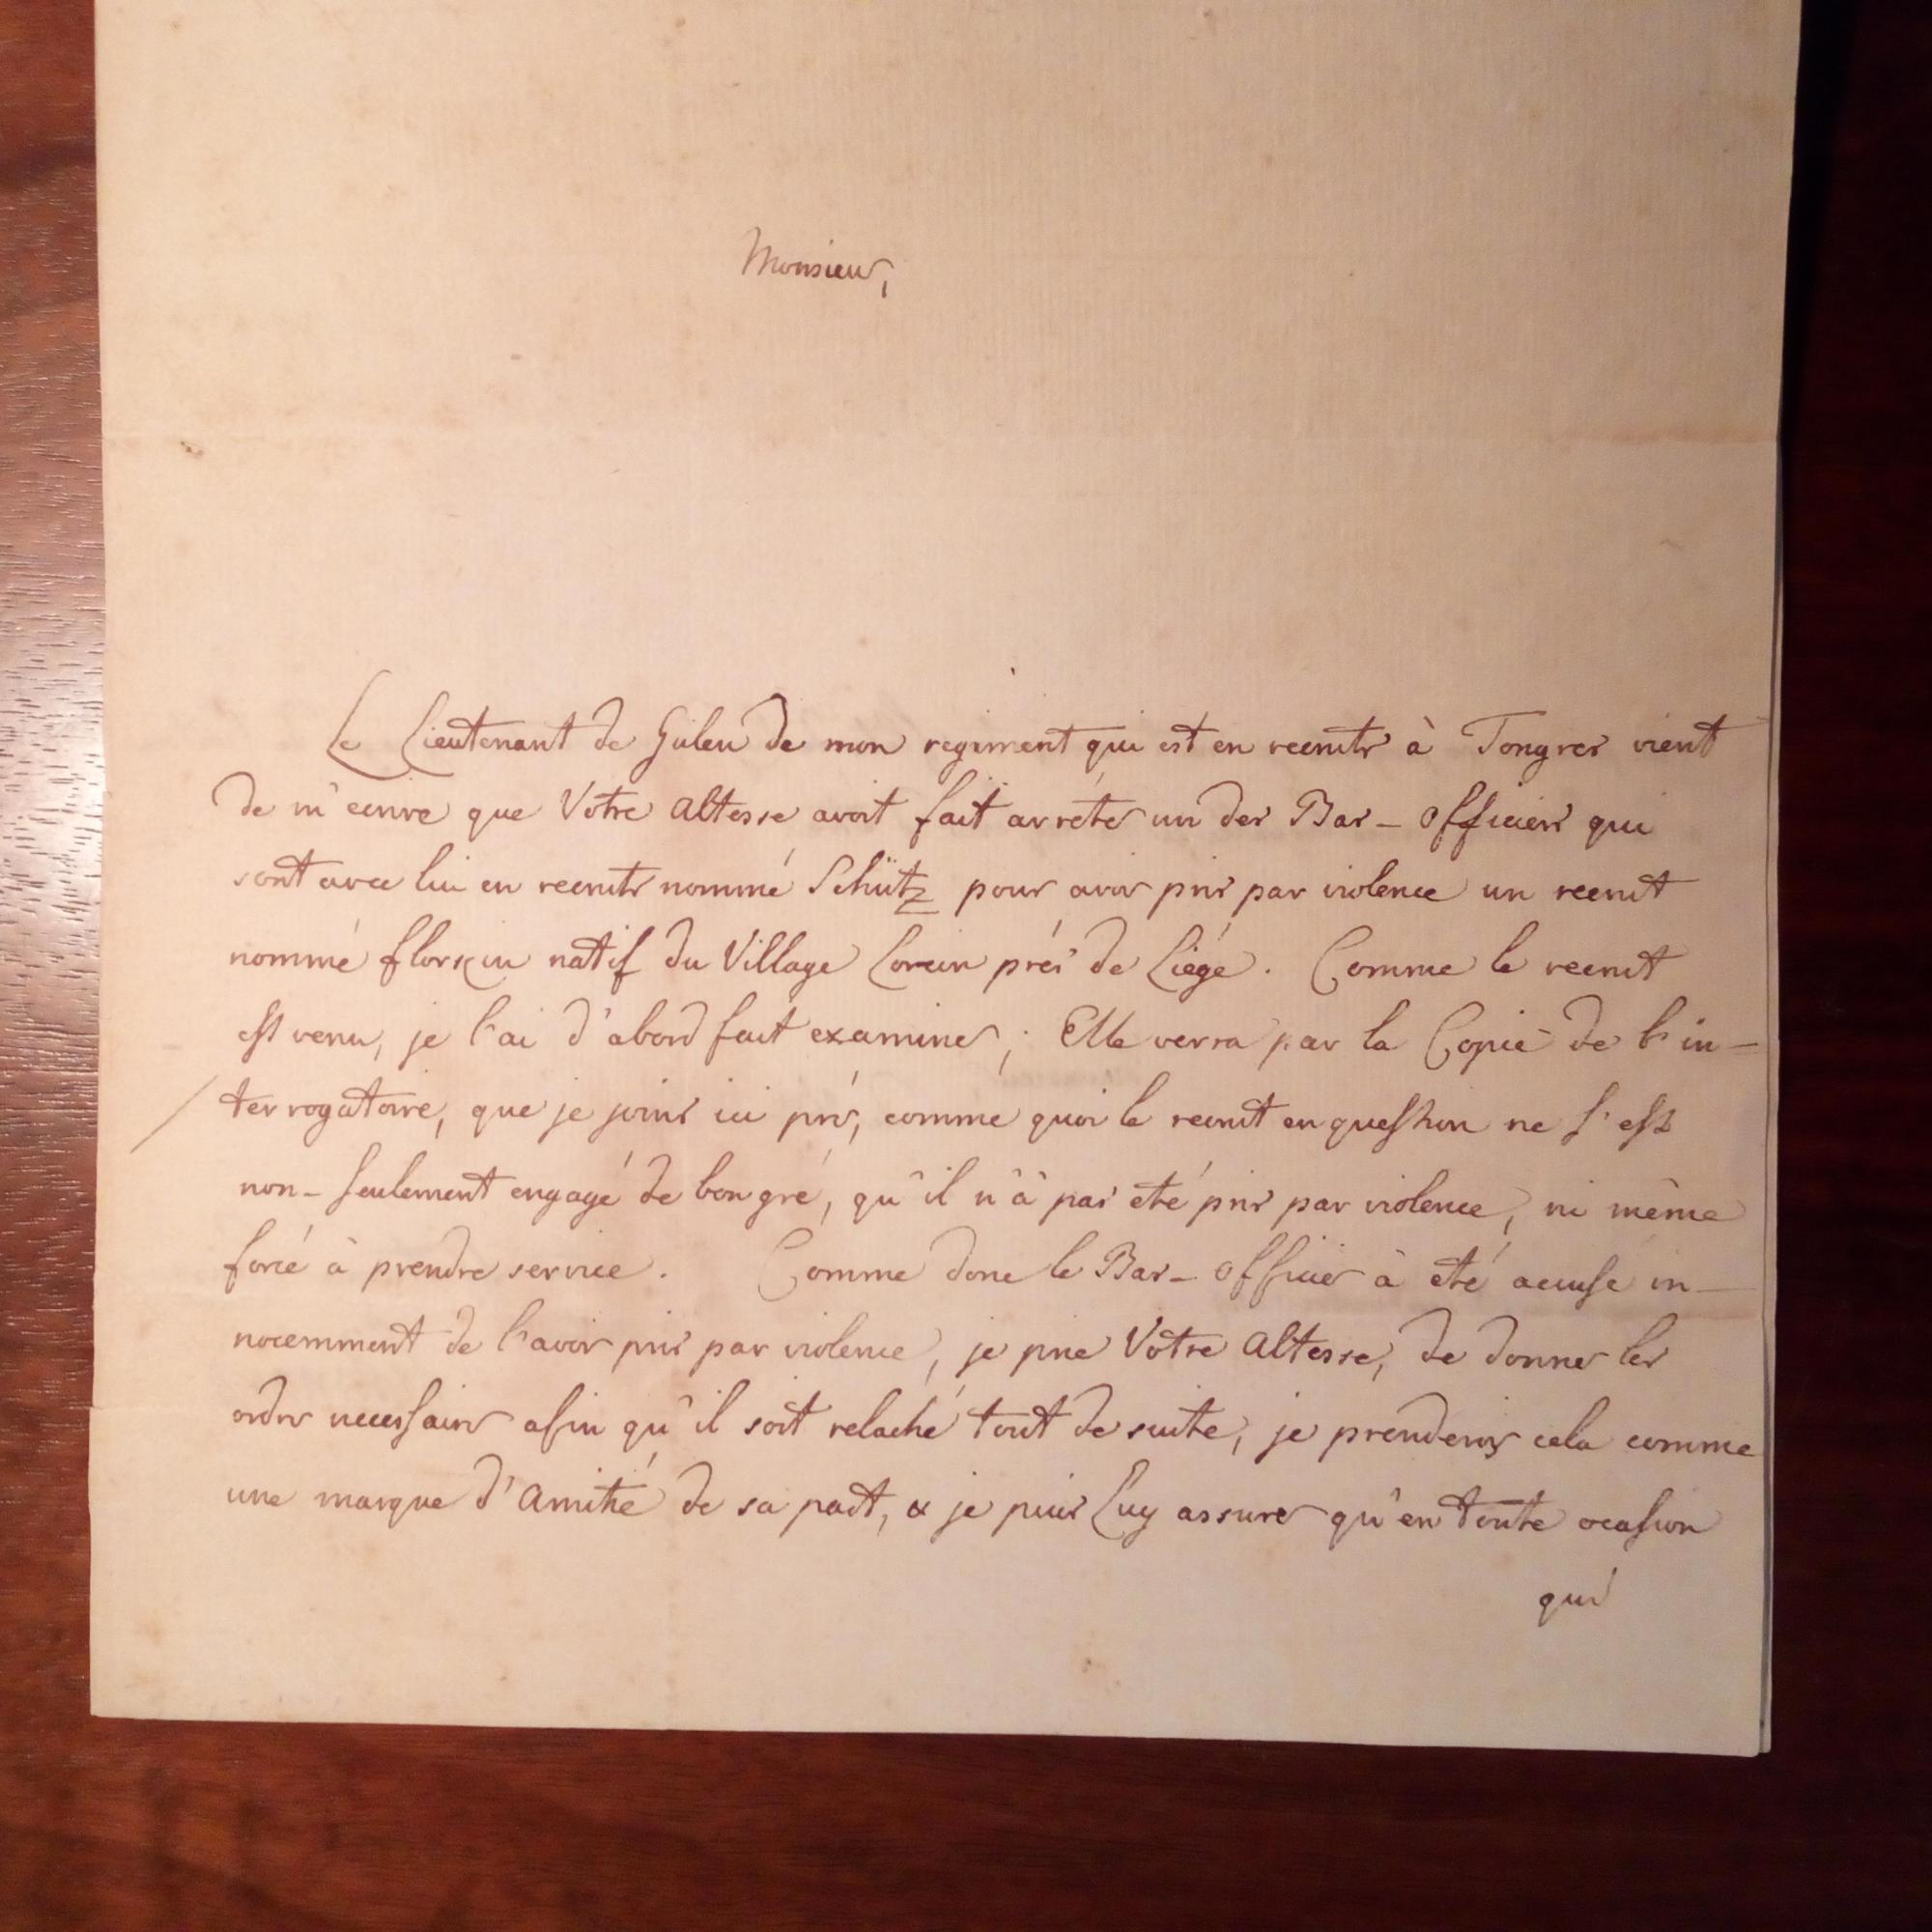 Monsieur,
Le Lieutenant de Guleu de mon regiment qui est en recruts à Tongres vient
de m'ecrire que Votre Altesse avoit fait arrêter un des Bas-Officiers qui
sont avec lui en recruts nommé Schütz pour avoir pris par violence un recrut
nommé florkin natif du Village Lorcin prés de Liége. Comme le recrut
est venu, je l'ai d'abord fait examiner; Elle verra par la Copie de l'in-
terrogatoire, que je joins ici prés, comme quoi le recrut en question ne s'est
non-seulement engagé de bon gré, qu'il n'à pas eté pris par violence, ni même
forcé à prendre service. Comme donc le Bas-Officier à eté accusé in-
nocemment de l'avoir pris par violence, je prie Votre Altesse, de donner les
ordrs necessairs afin qu'il soit relaché tout de suite, je prenderois cela comme
une marque d'Amitié de sa part, & je puis Luy assurer qu'en toute ocasion
qui